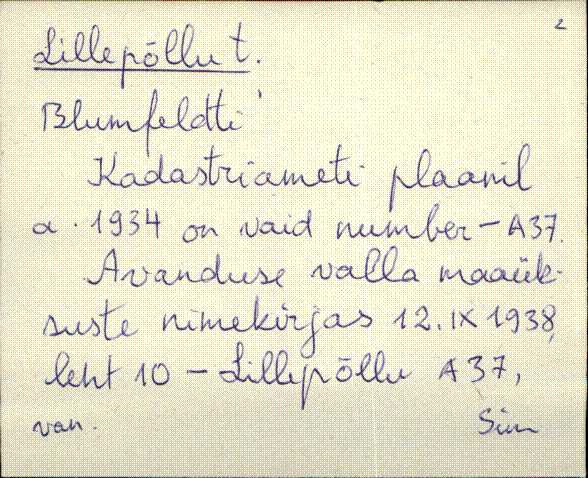 2
Lillepõllu t.
Blumfeldti
Kadastriameti plaanil
a. 1934 on vaid number – A37.
Avanduse valla maaük-
suste nimekirjas 12.IX 1938,
leht 10 – Lillepõllu A37,
van.